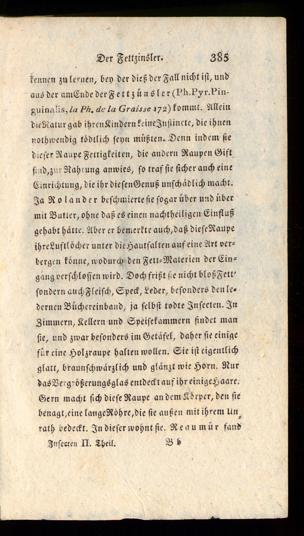 Der Fettzinsler. 385
kennen zu lernen, bey der dieß der Fall nicht ist, und
aus der am Ende der Fettzünsler (Ph. Pyr. Pin-
guinalis, la Ph. de la Graisse 172) kommt. Allein
die Natur gab ihren Kindern keine Instincte, die ihnen
nothwendig tödtlich seyn müßten. Denn indem sie
dieser Raupe Fettigkeiten, die andern Raupen Gift
sind, zur Nahrung anwies, so traf sie sicher auch eine
Einrichtung, die ihr diesen Genuß unschädlich macht.
Ja Rolander beschmierte sie sogar über und über
mit Butter, ohne daß es einen nachtheiligen Einfluß
gehabt hätte. Aber er bemerkte auch, daß diese Raupe
ihre Luftlöcher unter die Hautfalten auf eine Art ver-
bergen könne, wodurch den Fett-Materien der Ein-
gang verschlossen wird. Doch frißt sie nicht bloß Fett,
sondern auch Fleisch, Speck, Leder, besonders den le-
dernen Büchereinband, ja selbst todte Insecten. In
Zimmern, Kellern und Speisekammern findet man
sie, und zwar besonders im Getäfel, daher sie einige
für eine Holzraupe halten wollen. Sie ist eigentlich
glatt, braunschwärzlich und glänzt wie Horn. Nur
das Vergrößerungsglas entdeckt auf ihr einige Haare.
Gern macht sich diese Raupe an dem Körper, den sie
benagt, eine lange Röhre, die sie außen mit ihrem Un-
rath bedeckt. In dieser wohnt sie. Reaumür fand
Insecten II. Theil. B b